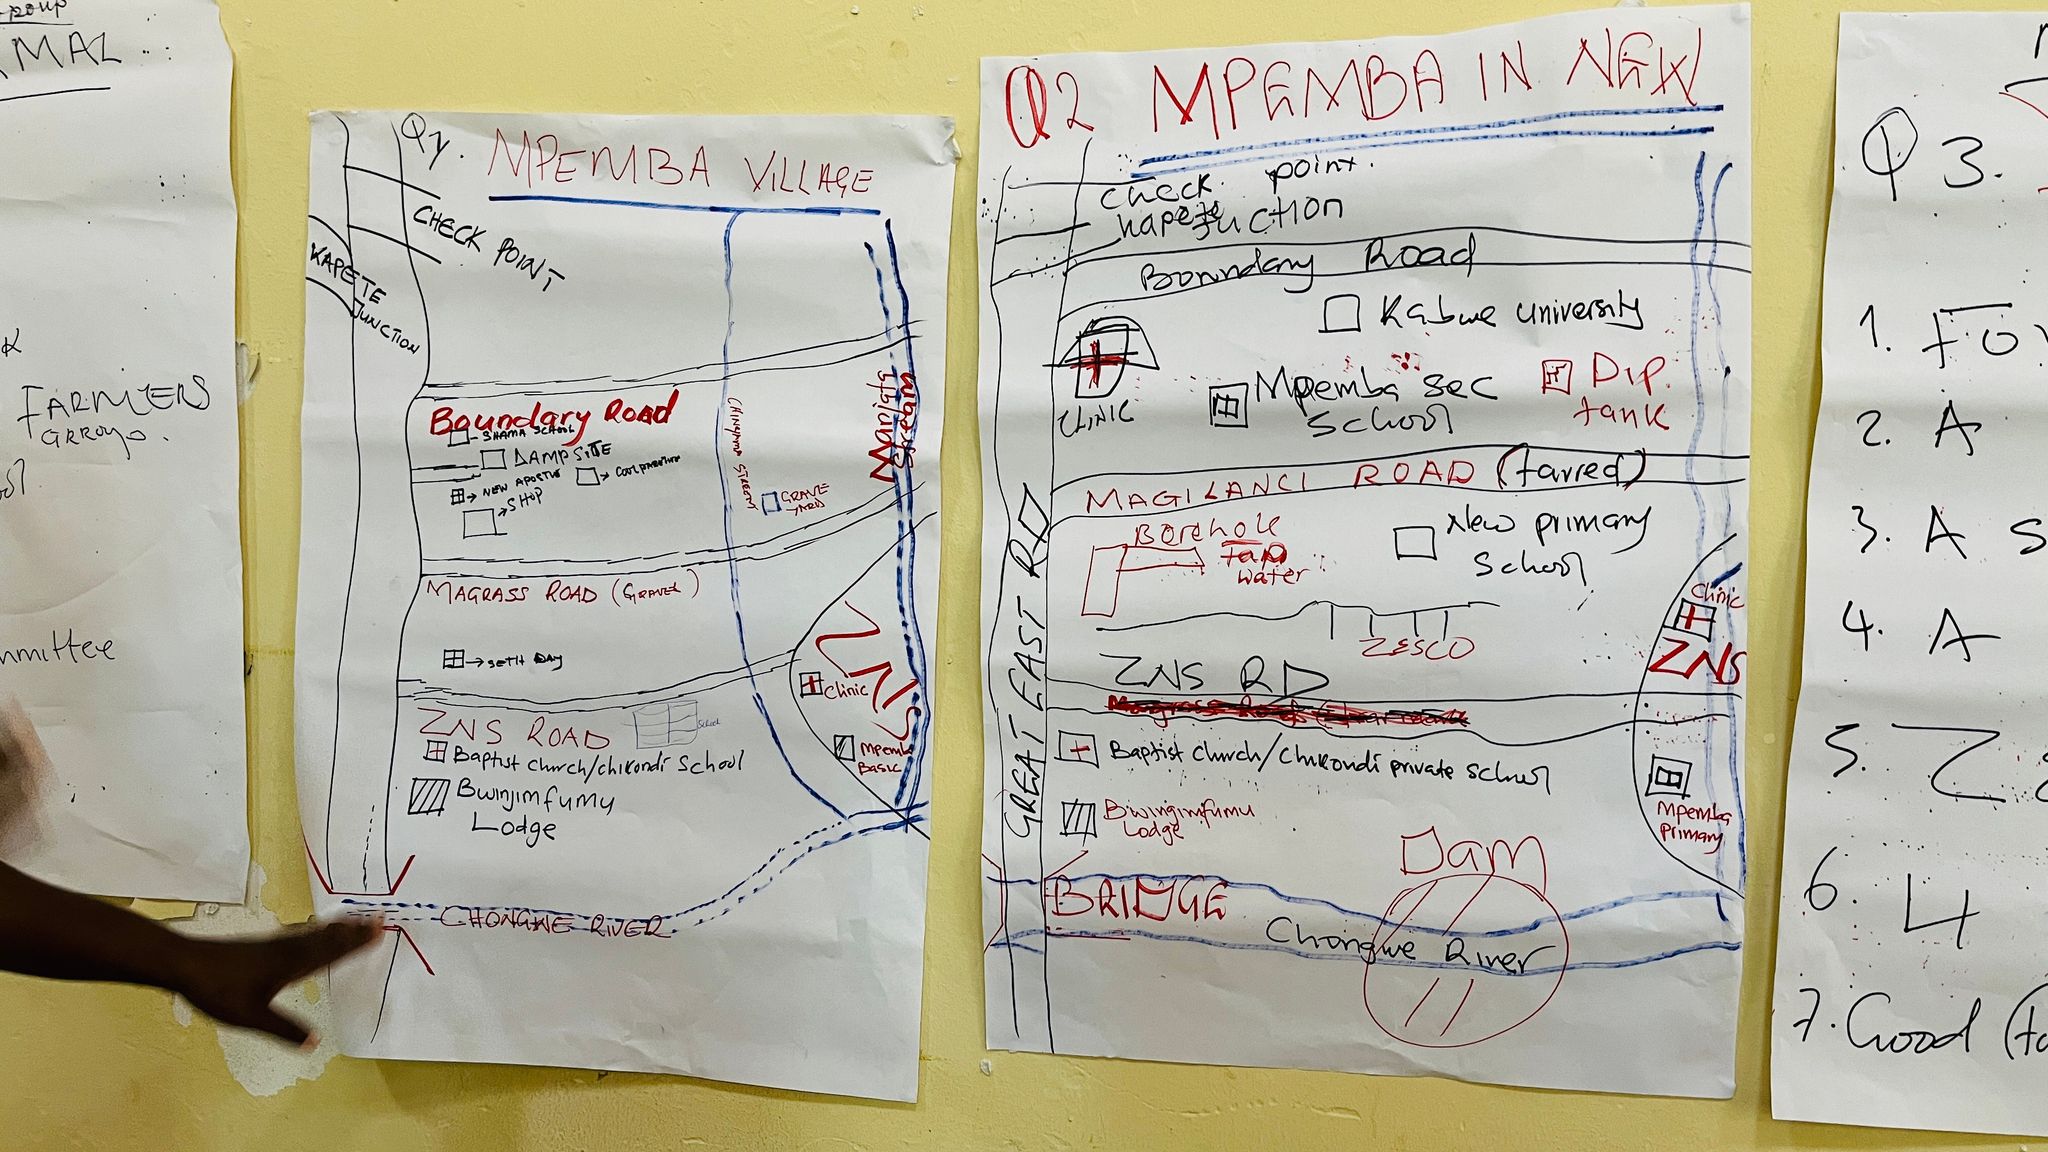 FARMERS
mmittee
Q1.
MPEMBA VILLAGE
CHECK POINT
KAPETE
JUNCTION
Boundary Road
SHAMA SCHOOL
DAMP SITE
NEW APOSTLE
SHOP
GRAVE
YARD
STREET
Stream
MAGRASS ROAD (GRAVEL)
SETH DAY
ZNS
Clinic
Mpemba
Basic
ZNS ROAD
School
Baptist church/chikondi School
Bwinjimfumu
Lodge
CHONGWE RIVER
Q2 MPEMBA IN NEW
Check point.
Kapete Juction
Boundary Road
Kabwe university
CLINIC
Mpemba sec
School
Dip.
tank
MAGILANCI ROAD (tarred)
Borehole
tap
water
New primary
School
ZESCO
Clinic
ZNS
ZNS RD
GREAT EAST RD
Baptist Church/Chikondi private school
Bwingimfumu
Lodge
Mpemba
primary
Dam
BRIDGE
Chongwe River
Q 3.
1.
2. A
3. A
4. A
5.
6.
7. Good